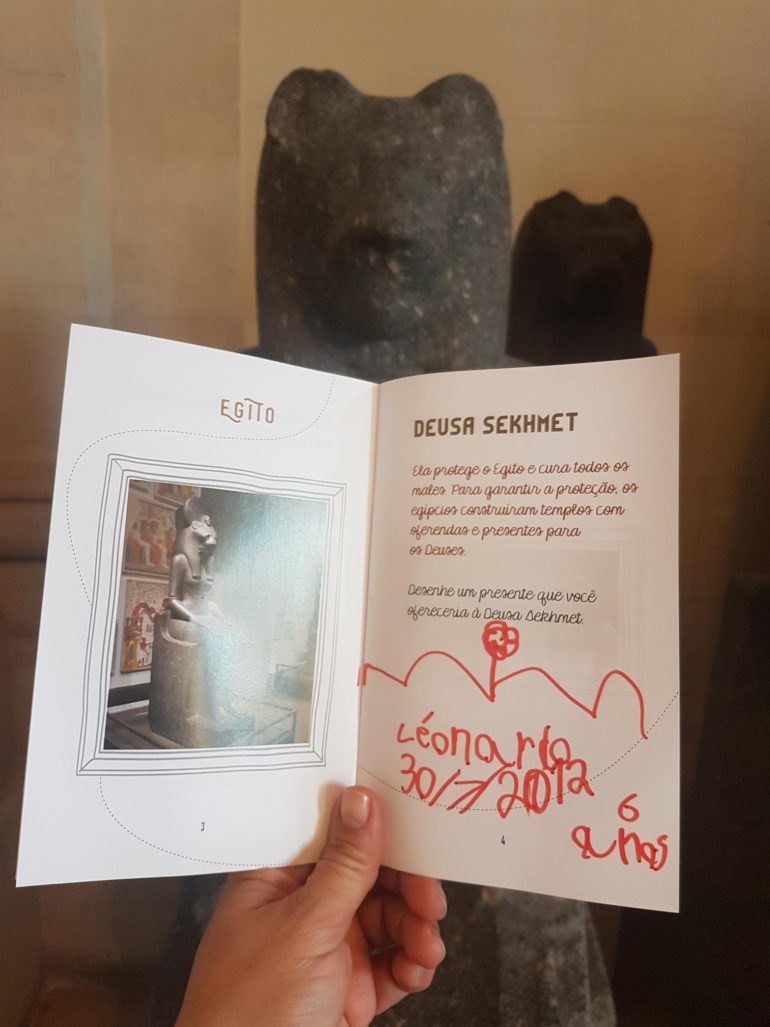 EGITO
3
DEUSA SEKHMET
Ela protege o Egito e cura todos os
males. Para garantir a proteção, os
egípcios construíram templos com
oferendas e presentes para
os Deuses.
Desenhe um presente que você
ofereceria à Deusa Sekhmet.
Léonardo
30/7/2012
6
anos
4